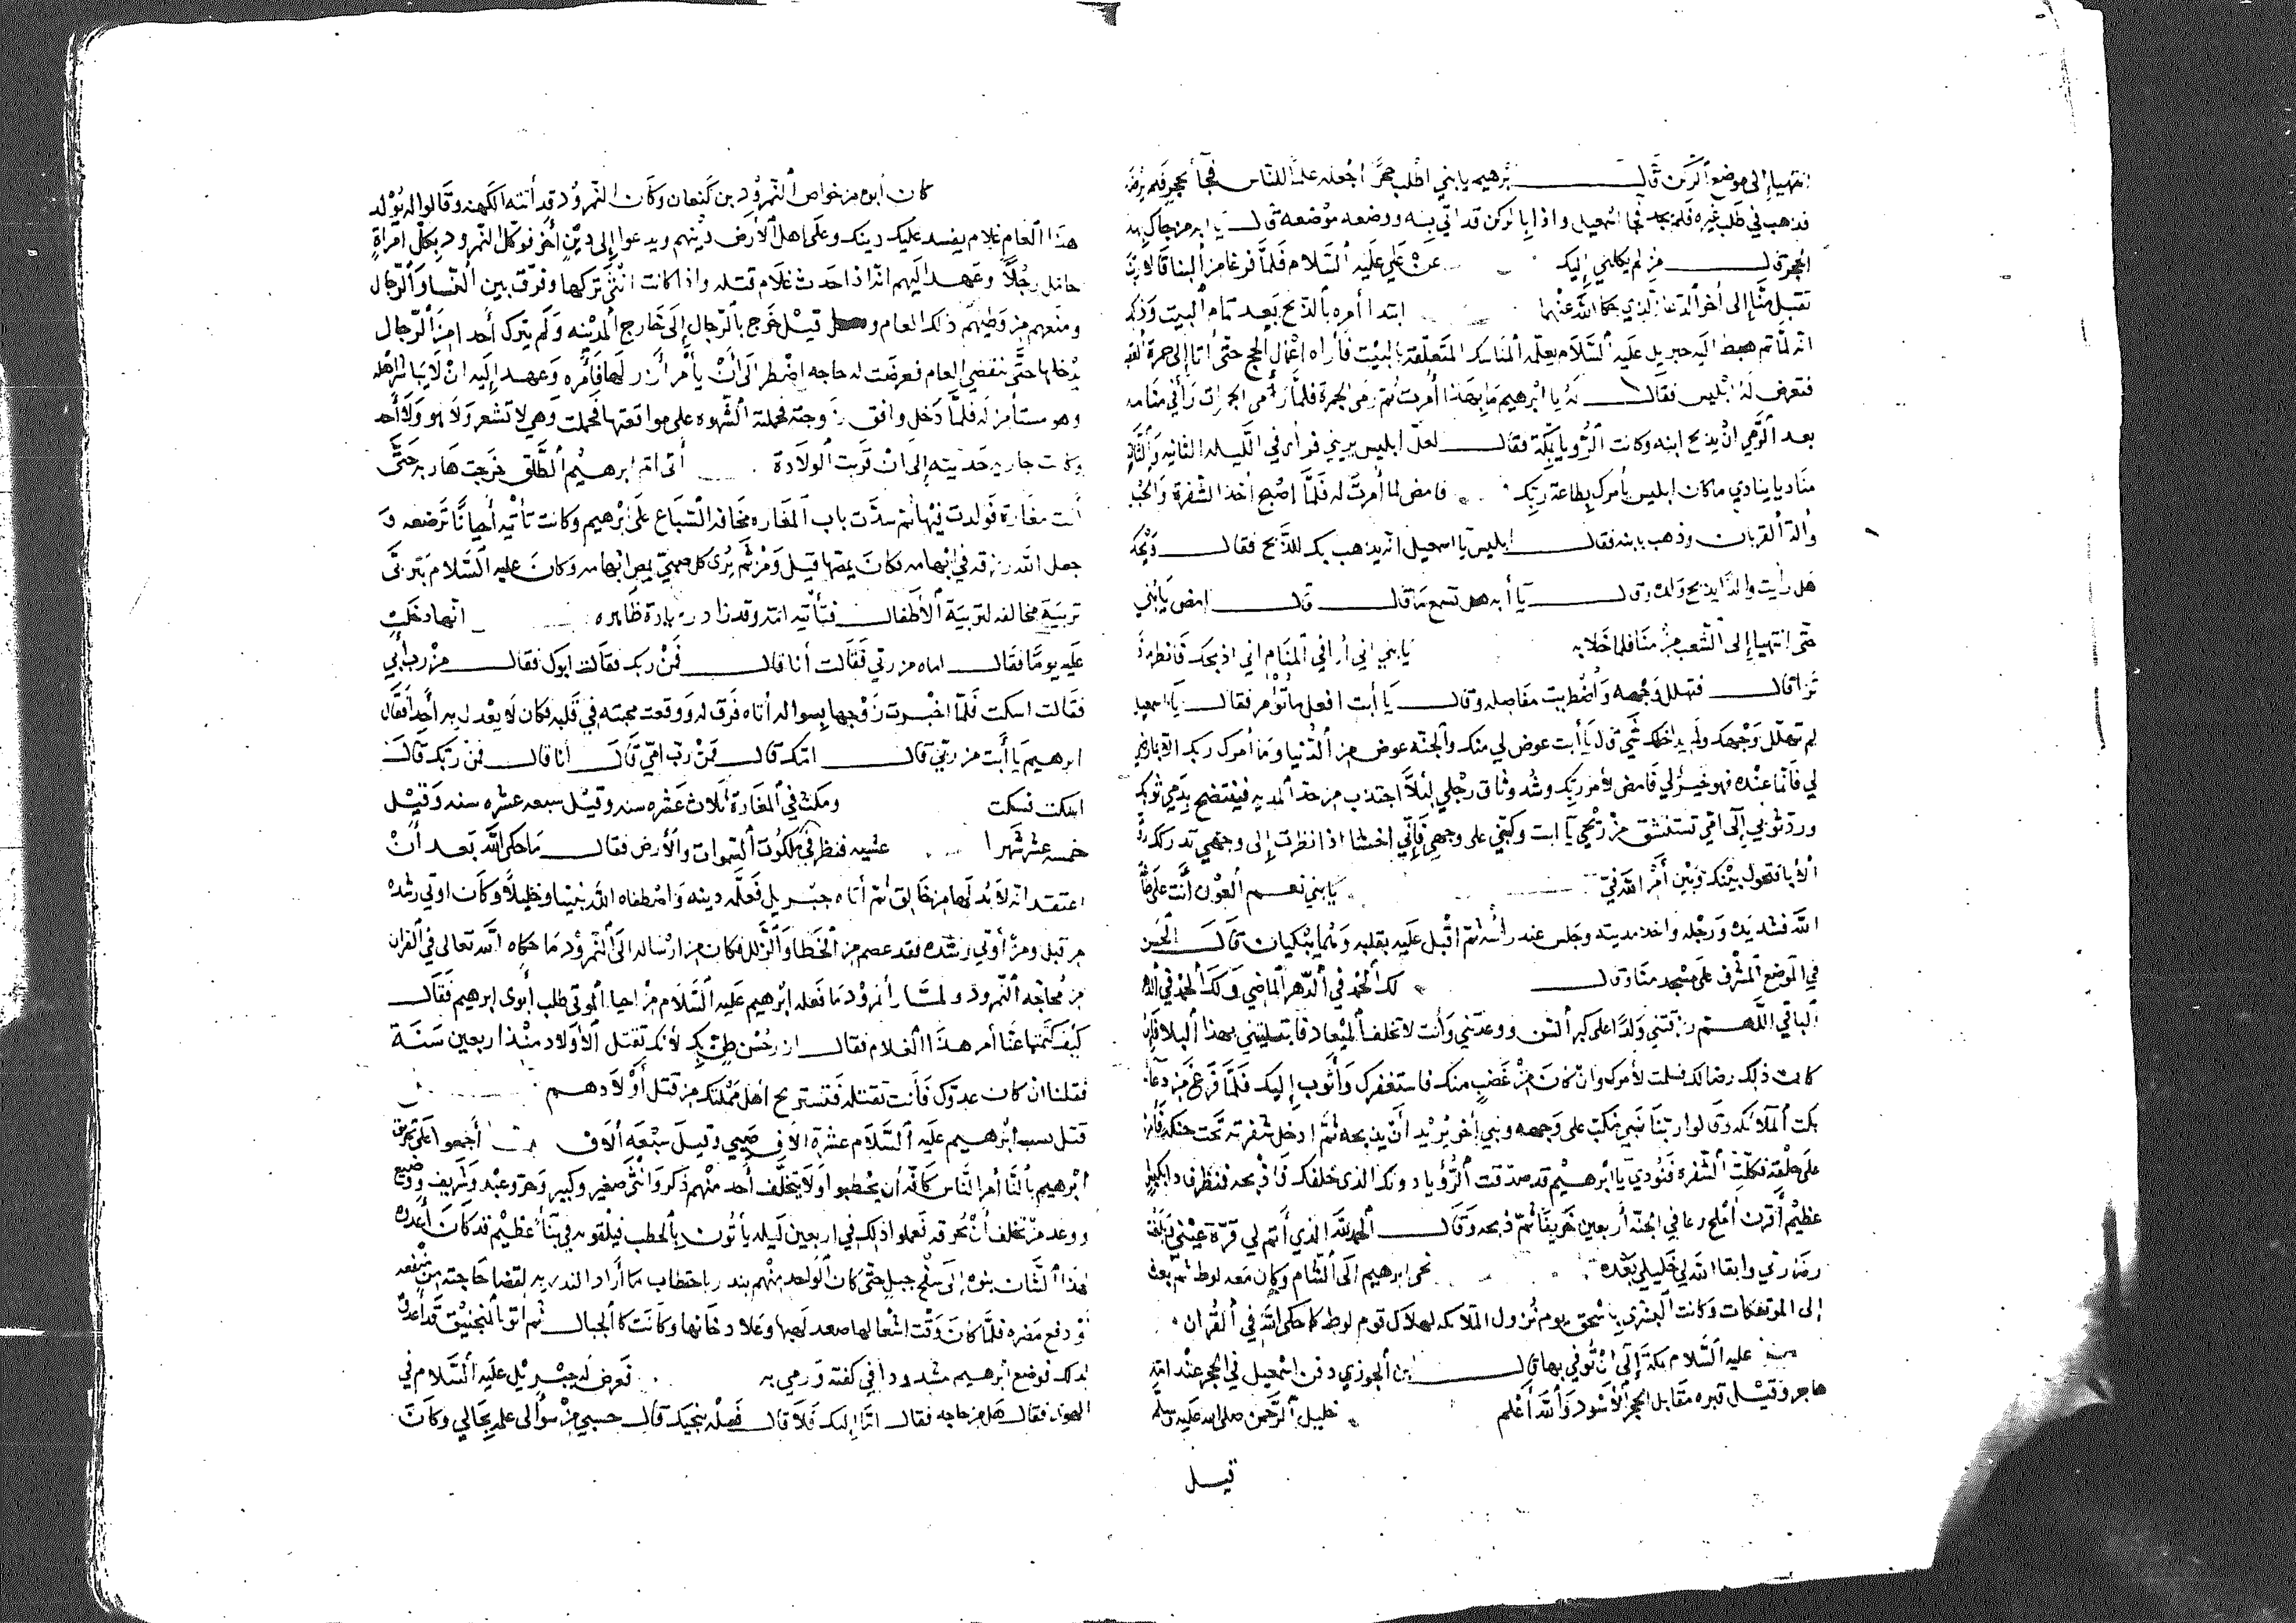 انتهيا إلى موضع الركن قال برهيم يا بني اطلب حجرًا اجعله علمًا للناس فجآ بحجر فلم يرضه
فذهب في طلب غيره فلم يجد فجا اسمعيل واذا بالركن قد اتي به ووضعه موضعه قال يا ابه من جاك بهذا
الحجر قال من لم يكلني إليك عن علي عليه السلام فلما فرغا من البنا قالا ربنا
تقبل منا إلى أخر الدعا الذي حكا الله عنهما ابتدا أمره بالذبح بعد تمام البيت وذكر
انه لما تم هبط اليه جبريل عليه السلام يعلمه المناسك المتعلقة بالبيت فأراه اعمال الحج حتى أتا إلى جمرة العقبة
فتعرض له ابليس فقال له يا ابرهيم ما بهذا أمرت ثم رمى الجمرة فلما رمى الجمرات رأى في منامه
بعد الرمي ان يذبح ابنه وكانت الرؤيا بمكة فقال لعل ابليس يريني فرأى في الليله الثانيه والثالثة
مناديا ينادي ما كان ابليس يأمرك بطاعة ربك فامض لما أمرت له فلما اصبح أخذ الشفرة والحبل
وألة القربان وذهب بابنه فقال ابليس يا اسمعيل انه يذهب بك للذبح فقال ويحك
هل رأيت والدًا يذبح ولده وقال يا أبه هل تسمع ما قال قال امض يا بني
حتى انتهيا إلى الشعب من منا فلما خلا به يا بني اني أرا في المنام اني اذبحك فانظر ماذا
ترا قال فتهلل وجهه واضطربت مفاصله وقال يا أبت افعل ما تؤمر فقال يا اسمعيل
لم تهلل وجهك ولم يداخلك شي قال يا أبت عوض لي منك والجنه عوض من الدنيا وما أمرك ربك الا بما رضي
لي فانما عنده فهو خير لي فامض لأمر ربك وشد وثاق رجلي لئلا اجتذب من حد المديه فينتضح بدمي ثوبك
ورد ثوبي إلى امي تستنشق من ريحي يا ابت وكبني على وجهي فإني اخشا اذا نظرت إلى وجهي تدركك رقة
الأبا فتحول بينك وبين أمر الله فيّ يا بني نعم العون أنت على طاعة
الله فشد يده ورجله واخذ مديته وجلس عند رأسه ثم اقبل عليه بقلبه وهما يبكيان قال الحسن
في الموضع المشرف على مسجد منا وقال لك الحمد في الدهر الماضي ولك الحمد في الدهر
الباقي اللهم رزقتني ولدًا على كبر السن ووعدتني وأنت لا تخلف الميعاد فابتليتني بهذا البلا فإن
كان ذلك رضا لك فسلمت لأمرك وان كان من غضب منك فاستغفرك وأتوب إليك فلما فرغ من دعائه
بكت الملائكه وقالوا ربنا نبي مكب على وجهه ونبي أخر يريد أن يذبحه ثم ادخل شفرته تحت حنكه فأمر
على حلقه فكلت الشفره فنودي يا ابرهيم قد صدقت الرؤيا دونك الذي خلفك فاذبحه فنظر فاذا بكبش
عظيم أقرن أملح رعا في الجنه أربعين خريفا ثم ذبحه وقال الحمد لله الذي أتم لي قرة عيني
رضا ربي وابقا الله لي خليلي بعده نحى ابرهيم الى الشام وكان معه لوط ثم بعث
إلى المؤتفكات وكانت البشرى باسحق يوم نزول الملائكه لهلاك قوم لوط كما حكى الله في القران
عليه السلام بمكة إلى ان توفي بها قال ابن الجوزي دفن اسمعيل في الحجر عند امه
هاجر وقيل قبره مقابل الحجر الأسود والله أعلم خليل الرحمن صلى الله عليه وسلم
قيل
كان أبوه من خواص النمرود بن كنعان وكان النمرود قد أتته الكهنه وقالوا له يولد
هذا العام غلام يفسد عليك دينك وعلى اهل الأرض دينهم ويدعوا إلى دين أخر فوكل النمرود بكل امراة
حامل رجلًا وعهد اليهم انه اذا حدث غلام قتله واذا كانت انثى تركها وفرق بين النسا والرجال
ومنعهم من وطيهم ذلك العام قيل خرج بالرجال إلى خارج المدينه ولم يترك أحدا من الرجال
يدخلها حتى ينقضي العام فعرضت له حاجه اضطر الى أن يأمر أزر لها فأمره وعهد إليه ان لا يباشر اهله
وهو مستأمن له فلما دخل وافق زوجته فحملته الشهوه على مواقعتها فحملت وهي لا تشعر ولا هو ولا أحد
وكانت جاريه حديثه إلى ان قربت الولادة أتى ام ابرهيم الطلق خرجت هاربه حتى
أتت مغارة فولدت فيها ثم سدت باب المغاره مخافة السباع على برهيم وكانت تأتيه أحيانًا ترضعه و
جعل الله رزقه في ابهامه فكان يمصها قيل ومن ثم يرى كل صبي يمص ابهامه وكان عليه السلام يتربى
تربية مخالفه لتربية الأطفال فتأتيه امه وقد زاد زيادة ظاهره انها دخلت
عليه يومًا فقال اماه من ربي فقالت أنا قال فمن ربك فقالت ابوك فقال من رب أبي
فقالت اسكت فلما اخبرت زوجها بسواله أتاه فرق له ووقعت محبته في قلبه فكان لا يعدل به أحدا فقال
ابرهيم يا أبت من ربي قال امك قال فمن رب امي قال أنا قال فمن ربك قال
اسكت فسكت ومكث في المغارة ثلاث عشره سنه وقيل سبعه عشره سنه وقيل
خمسه عشر شهرا عشيه فنظر في ملكوت السموات والأرض فقال ما حكى الله بعد أن
اعتقد انه لا بد لها من خالق ثم أتاه جبريل فعلمه دينه واصطفاه الله نبيا وخليلًا وكان اوتي رشده
من قبل ومن أوتي رشده فقد عصم من الخطا والزلل فكان من ارساله الى النمرود ما حكاه الله تعالى في القران
من محاججه النمرود ولما رأ نمرود ما فعله ابرهيم عليه السلام من احيا الموتى طلب أبوى ابرهيم فقال
كيف كتمتما عنا أمر هذا الغلام فقال من حسن طن بك لأنك تقتل الأولاد منذ اربعين سنة
فقلنا ان كان عدوك فأنت تقتله فتستريح أهل مملكتك من قتل أولادهم
قتل بسبب ابرهيم عليه السلام عشرة الاف صبي وقيل سبعه ألاف أجمعوا على تحريق
ابرهيم بالنا أمر الناس كافه أن يحطبوا ولا يتخلف أحد منهم ذكر وانثى صغير وكبير وحر وعبد وشريف ووضيع
ووعد من تخلف أن يحرقه فعملوا ذلك في اربعين ليله يأتون بالحطب فيلقونه في بنأ عظيم قد كان أعده
لهذا الشان بنوه إلى سفح جبل حتى كان الواحد منهم ينذر باحتطاب ما أراد النذر به لقضا حاجته من منفعه
ودفع مضره فلما كان وقت اشعالها صعد لهبها وعلا دخانها وكانت كالجبال ثم اتوا بالمنجنيق قد أعده
لذلك فوضع ابرهيم مشدودا في كفته ورمي به فعرض له جبريل عليه السلام في
الهواء فقال هل من حاجه فقال امّا إليك فلا قال فسله ينجيك قال حسبي من سؤالى علمه بحالي وكان